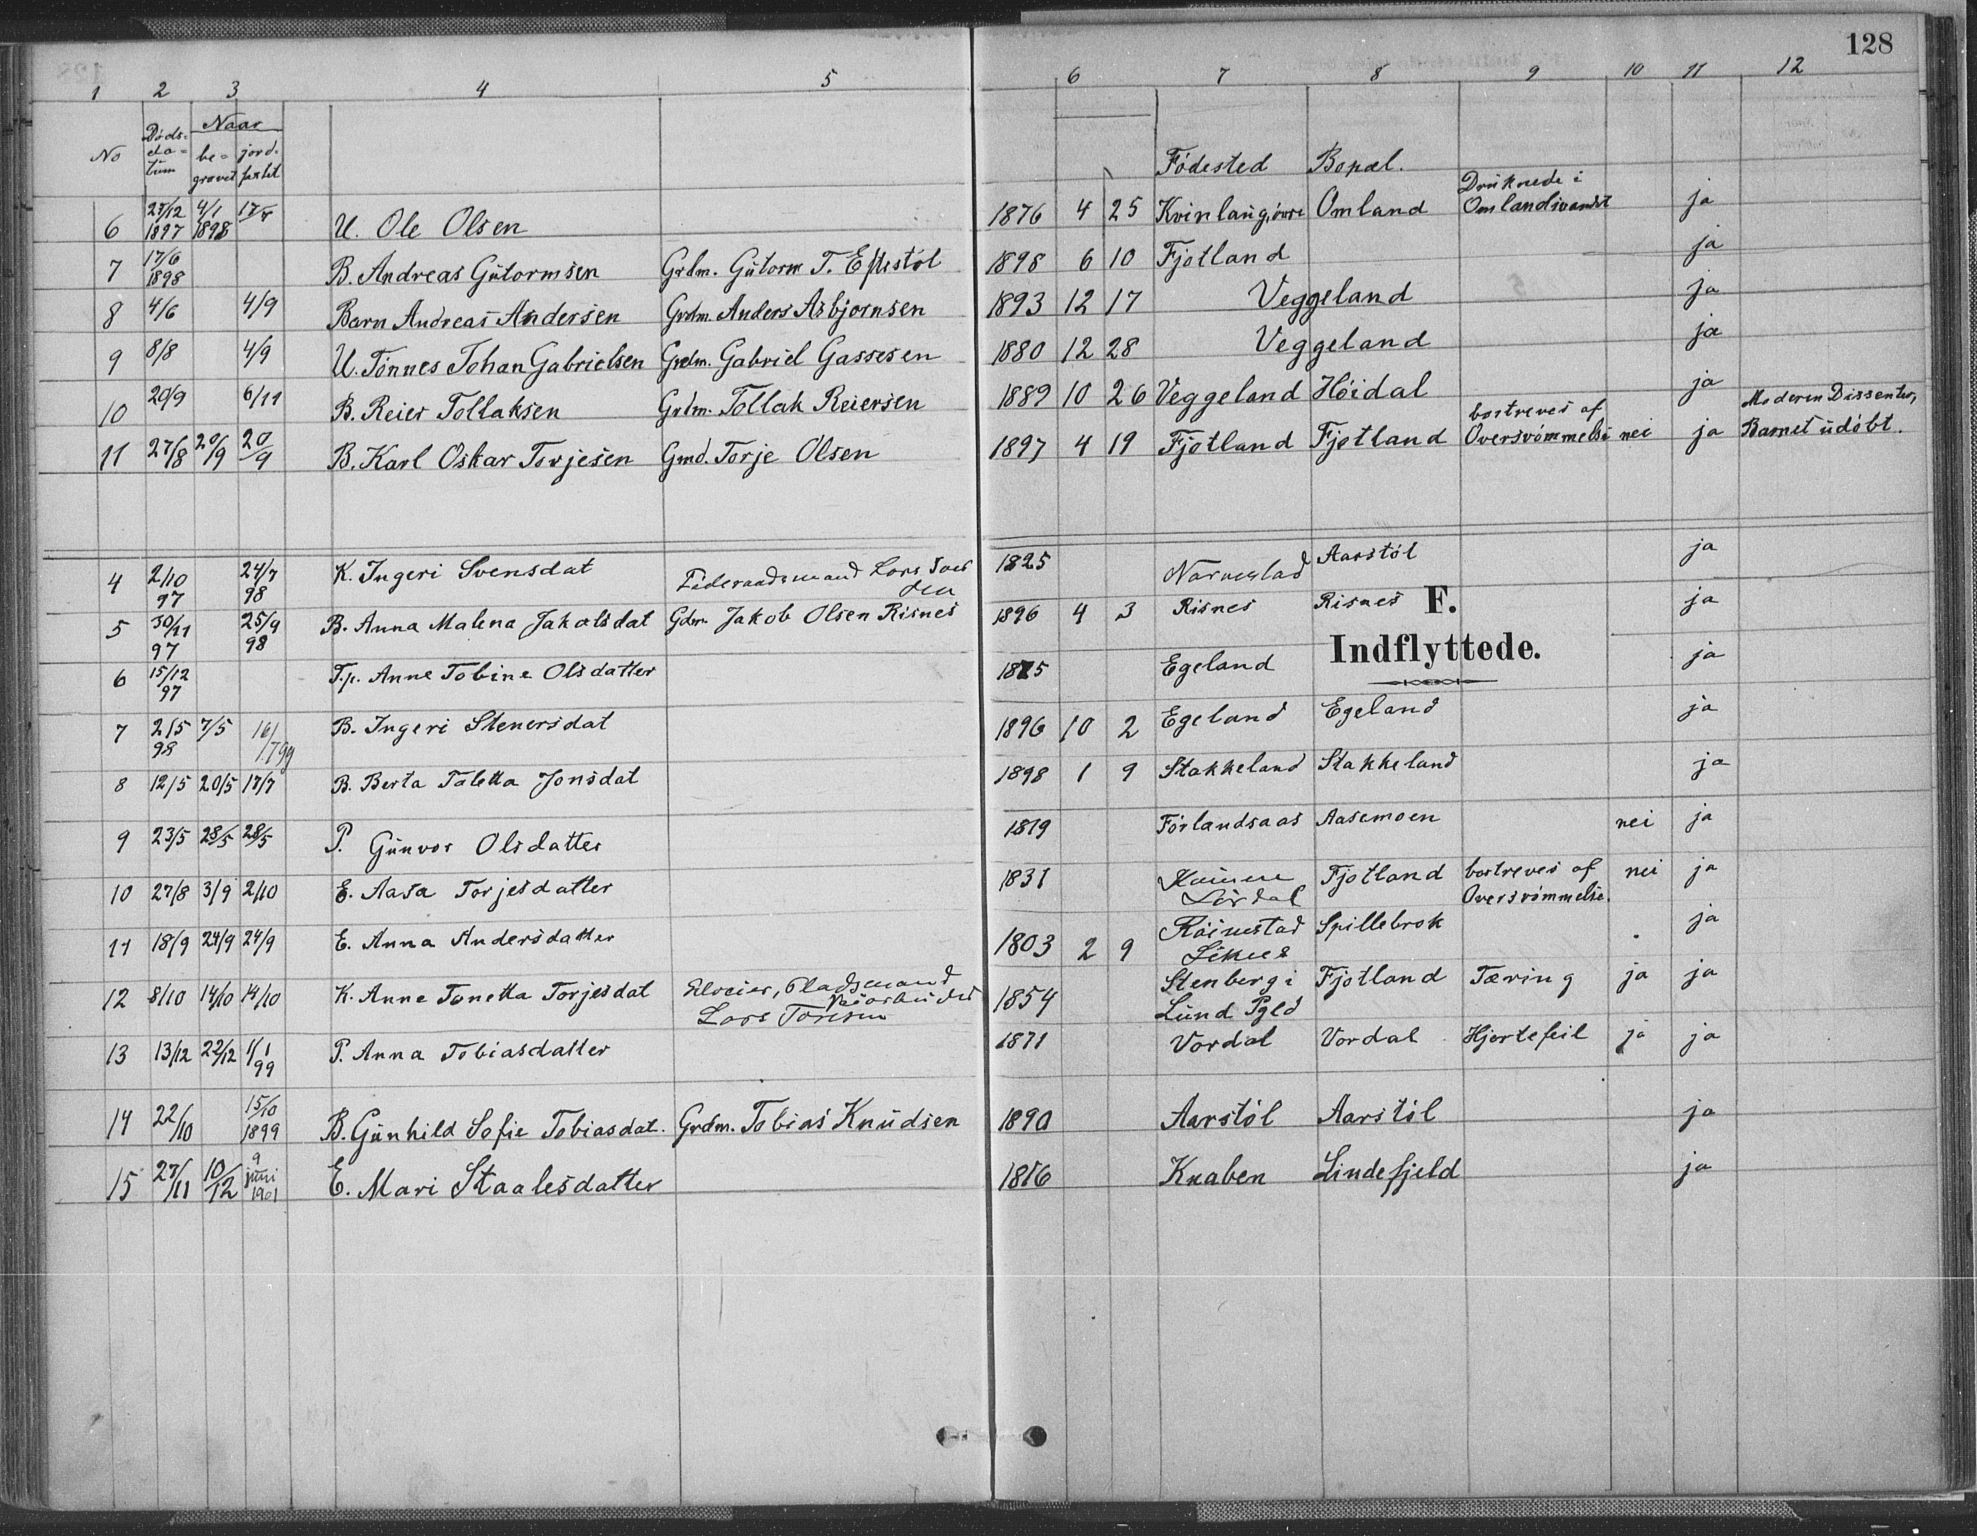 128
1 2 3 4 5 6 7 8 9 10 11 12
No Døds-datum Naar begravet jordfæstet Fødested Bopæl.
6 27/12 1897 4/1 1898 U. Ole Olsen 1876 4 25 Omland Druknede i Omlandsvandet ja
7 17/6 1898 B. Andreas Gutormsen Grdm. Gutorm T. Eftestøl 1898 6 10 Fjotland ja
8 4/6 4/9 Barn Andreas Andersen Grdm. Anders Asbjørnsen 1893 12 17 Veggeland ja
9 8/8 4/9 U. Tønnes Johan Gabrielsen Grdm. Gabriel Gassesen 1880 12 28 Veggeland ja
10 20/9 6/11 B. Reier Tollaksen Grdm. Tollak Reiersen 1889 10 26 Veggeland Høidal ja
11 27/8 20/9 20/9 B. Karl Oskar Torjesen Gmd. Torje Olsen 1897 4 19 Fjotland Fjotland bortreves af Oversvømmelse nei ja Moderen Dissenter, Barnet udøbt.
F.
Indflyttede.
4 2/10 97 24/7 98 K. Ingeri Svensdat Føderaadsmand Lars 1825 Aarstøl ja
5 30/11 97 25/9 98 B. Anna Malena Jakobsdat Gdm. Jakob Olsen Risnes 1896 4 3 Risnes Risnes ja
6 15/12 97 T.p. Anne Tobine Olsdatter 1875 Egeland ja
7 2/5 98 7/5 B. Ingeri Stenersdat 1896 10 2 Egeland Egeland ja
8 12/5 20/5 17/7 B. Berta Taletta Jonsdat 1898 1 9 Stakkeland Stakkeland ja
9 23/5 28/5 28/5 P. Gunvor Olsdatter 1879 Førlandsaas Aasemoen nei ja
10 27/8 3/9 2/10 E. Aasa Torjesdatter 1831 Fjotland bortreves af Oversvømmelse. nei ja
11 18/9 24/9 24/9 E. Anna Andersdatter 1803 2 9 Spillebrok ja
12 8/10 14/10 14/10 K. Anne Tonetta Torjesdat Pladsmand Lars 1854 Stenberg i Lund Pgld Fjotland Tæring ja ja
13 13/12 22/12 1/1 99 P. Anna Tobiasdatter 1871 Vordal Vordal Hjertefeil ja ja
14 22/10 15/10 1899 B. Gunhild Sofie Tobiasdat. Grdm. Tobias Knudsen 1890 Aarstøl Aarstøl ja
15 27/11 10/12 9 juni 1901 E. Mari Staalesdatter 1816 Knaben Lindefjeld ja